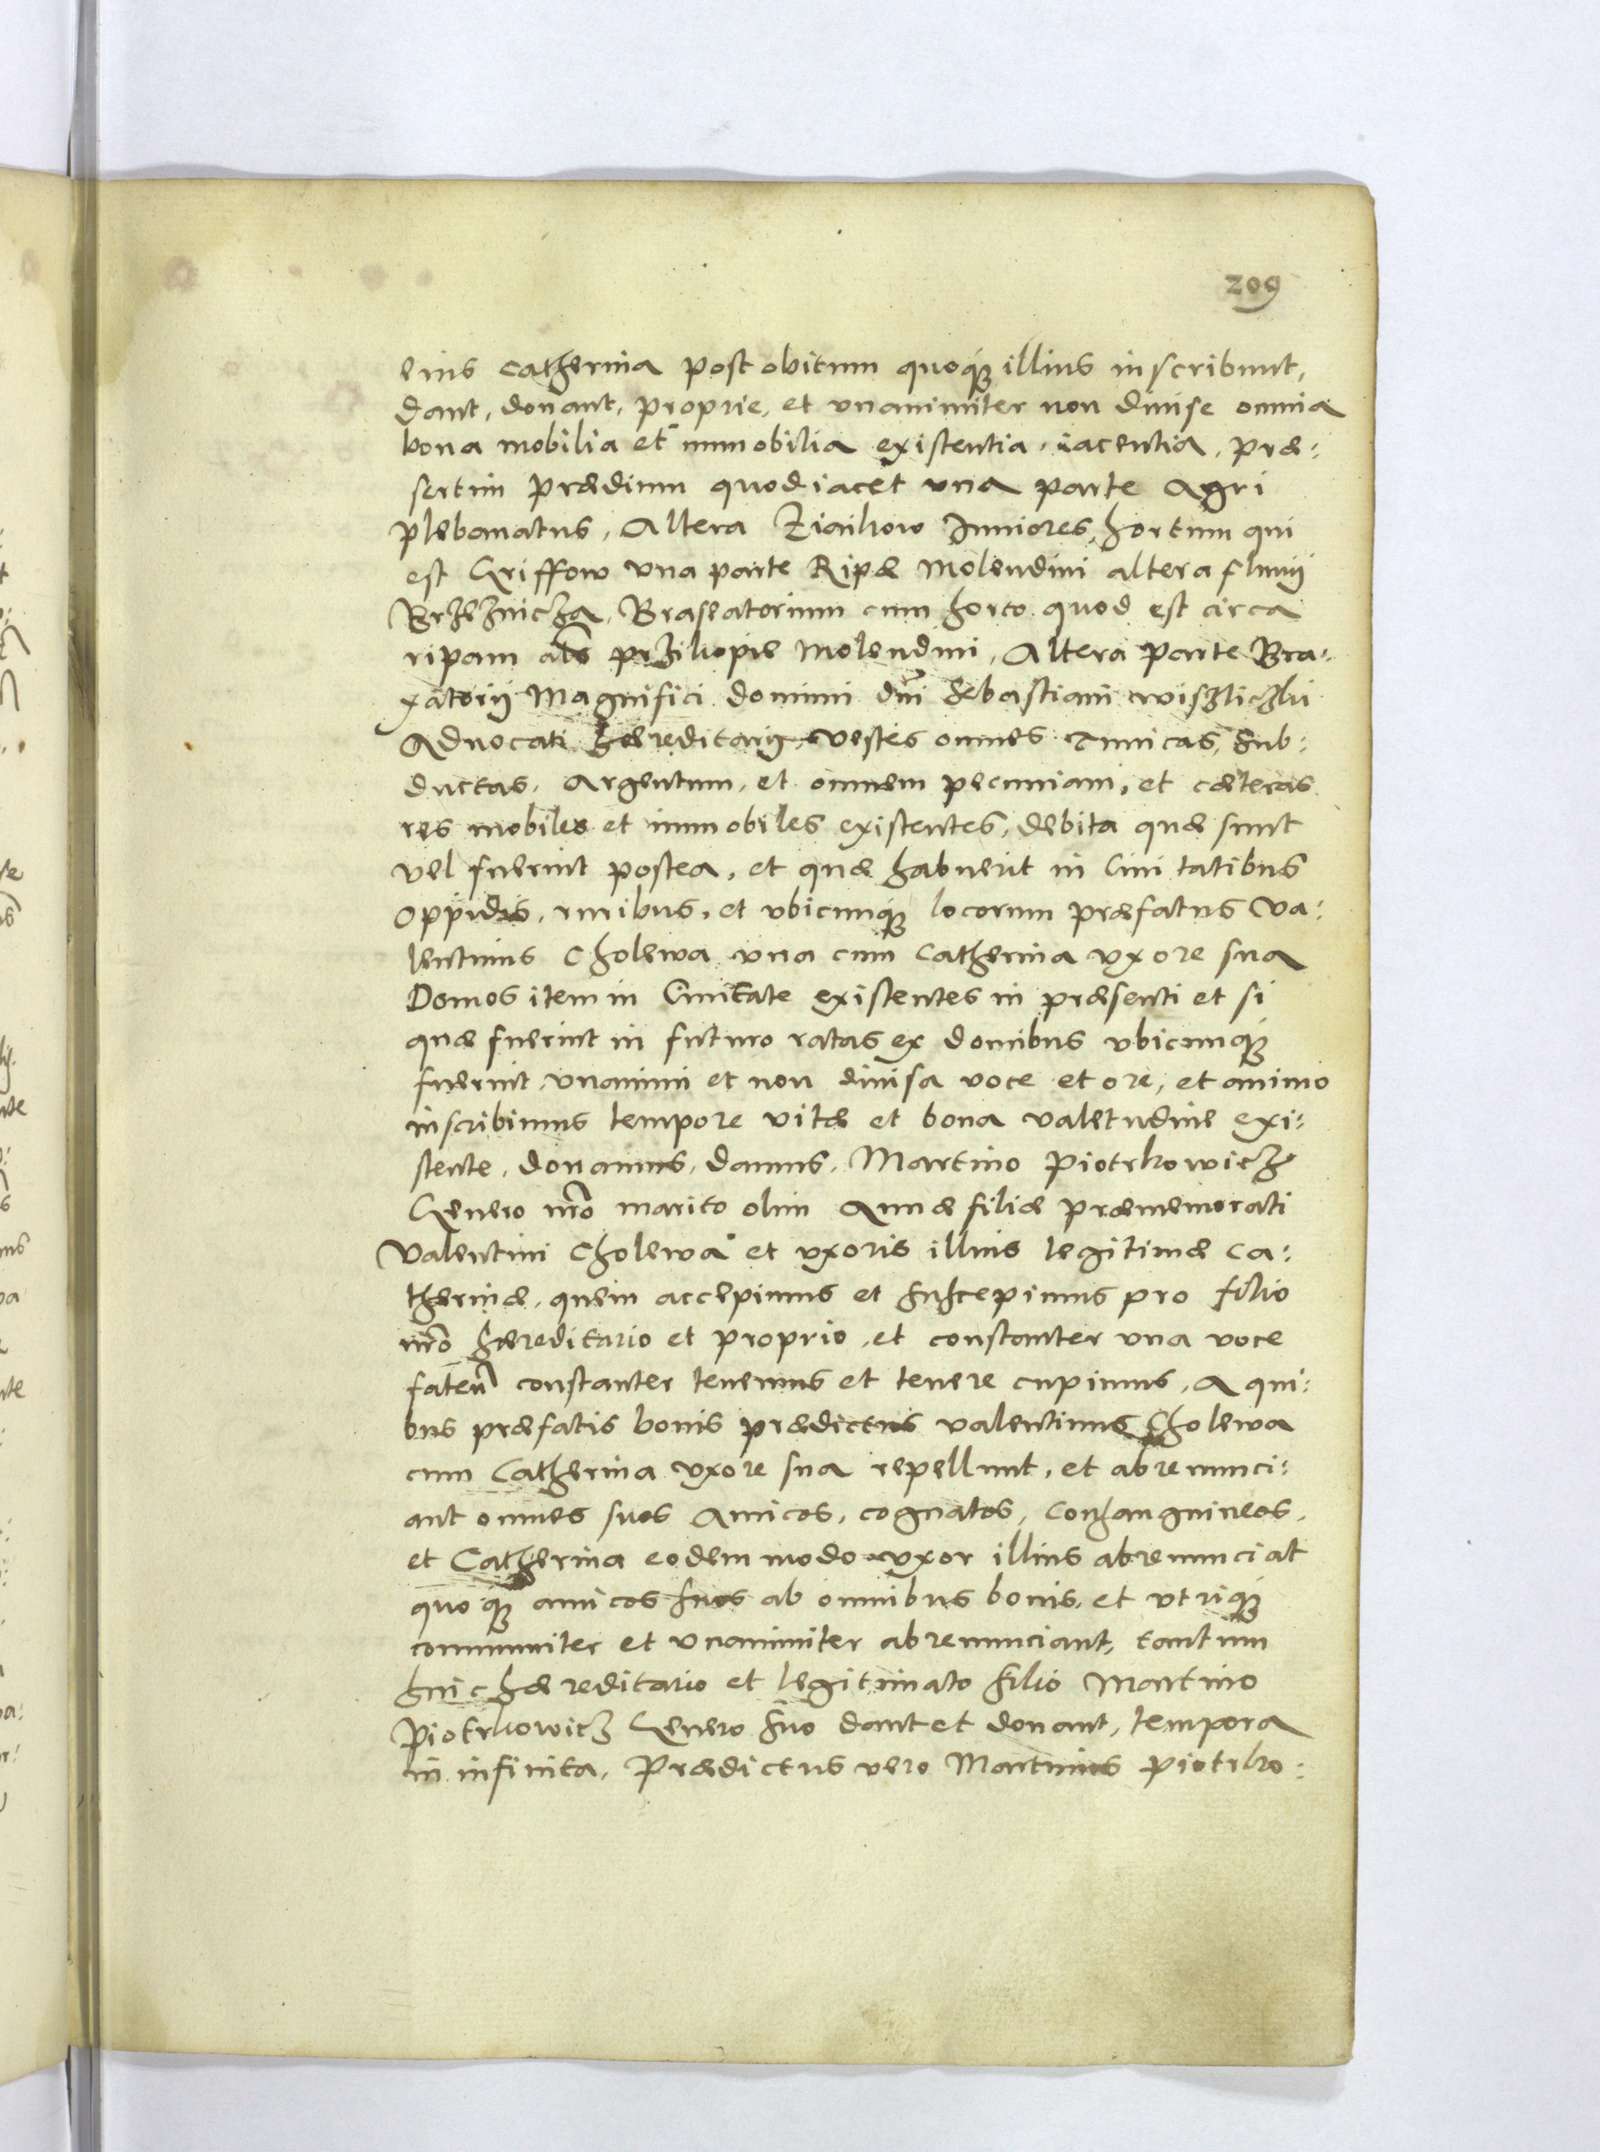 209
eius Catherina post obitum quoq́ illius inscribunt,
dant, donant, proprie, et vnanimiter non diuise omnia
bona mobilia et immobilia existentia, iacentia, præ:
sertim prædium quod iacet vna parte Agri
plebanatus, Altera Ziaikow Juniores, hortum qui
est Griffow vna parte Ripæ Molendini altera fluuij
Brzeznicza, Braseatorium cum horto quod est circa
ripam als przikopie Molendini, Altera parte Bra:
xatorij Magnifici domini dni Sebastiani wiszliczki
Aduocati hæreditarij, vestes omnes Tunicas, Sub:
ductas, Argentum, et omnem pecuniam, et cæteras
res mobiles et immobiles existentes, debita quæ sunt
vel fuerint postea, et quæ habuerit in Ciui tatibus
Oppidis, ruribus, et vbicunq́ locorum præfatus Va:
lentinus Cholewa vna cum Catherina vxore sua
Domos item in Ciuitate existentes in præsenti et si
quæ fuerint in futuro ratas ex domibus vbicunq́
fuerint, vnanimi et non diuisa voce et ore, et animo
inscribimus tempore vitæ et bona valetudine exi:
stente, donamus, damus, Martino Piotrkowicz
Genero nro marito olim Annæ filiæ præmemorati
Valentini Cholewa et vxoris illius legitimæ Ca:
therinæ, quem accepimus et suscepimus pro filio
nro hæreditario et proprio, et constanter vna voce
fatem̃ constanter tenemus et tenere cupimus, A qui:
bus præfatis bonis prædictus Valentinus Cholewa
cum Catherina vxore sua repellunt, et abrenunci:
ant omnes suos Amicos, cognatos, Consanguineos,
et Catherina eodem modo vxor illius abrenunciat
quoq́ amicos suos ab omnibus bonis, et vtriq́
communiter et vnanimiter abrenunciant, tantum
huic hæreditario et legitimato filio Martino
Piotrkowicz Genero suo dant et donant, tempora
in infinita, Prædictus vero Martinus Piotrko: